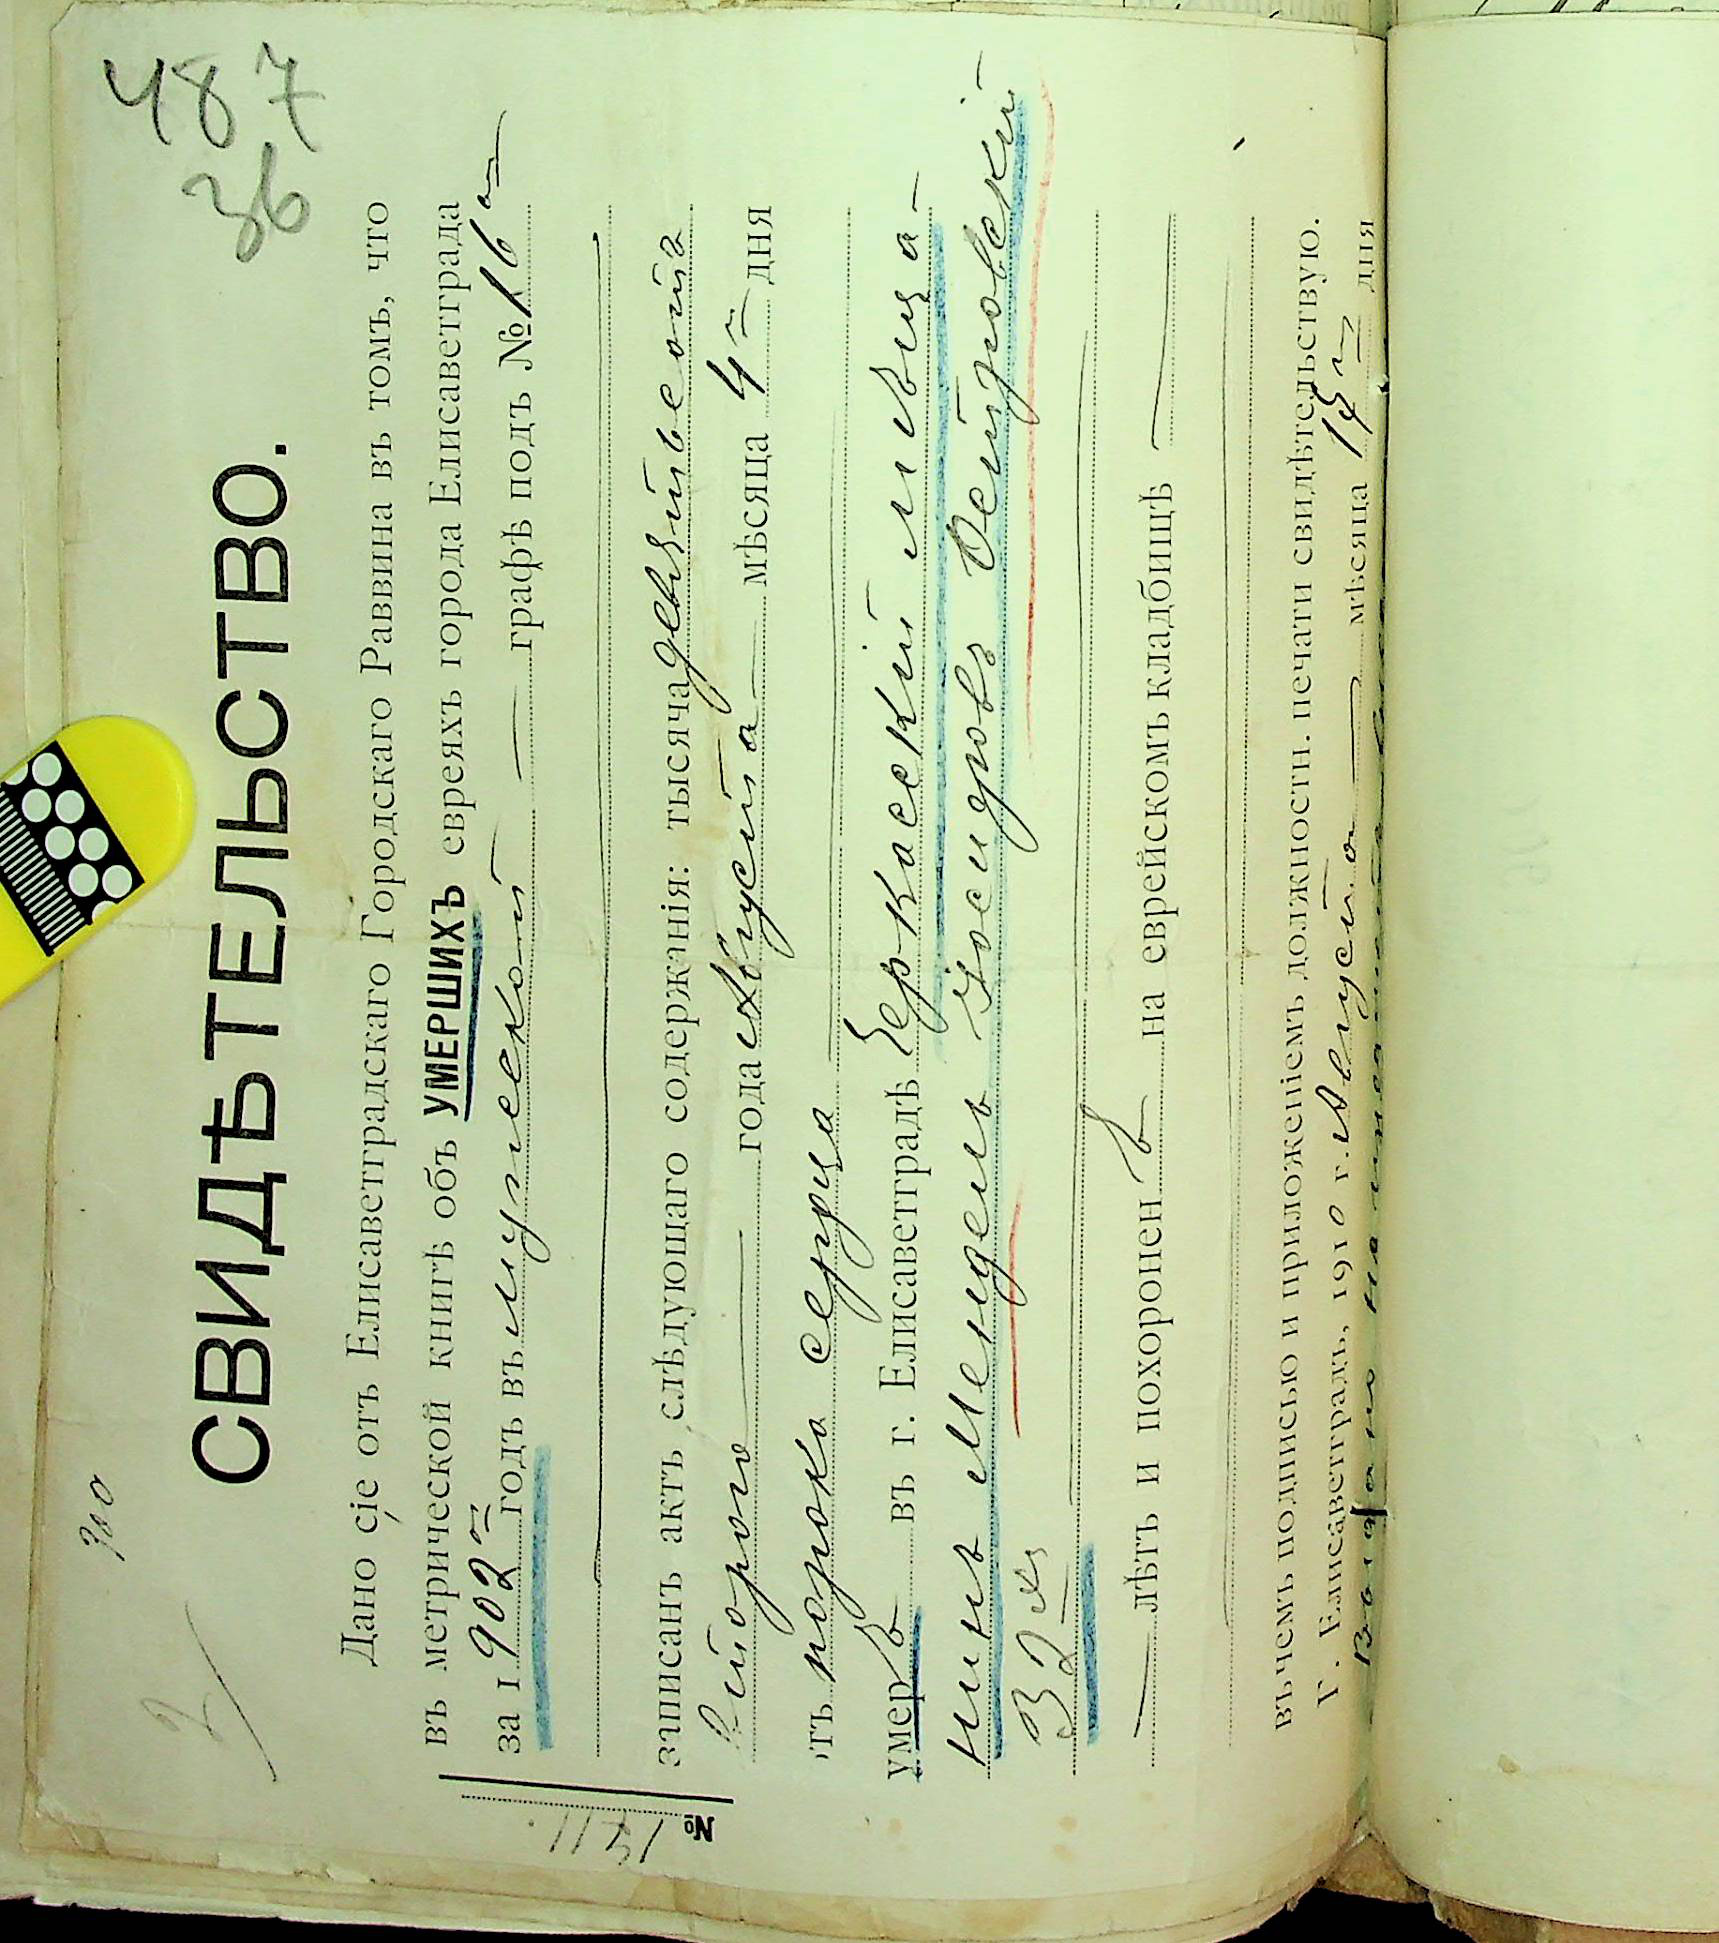 487
36
300
2
СВИДѢТЕЛЬСТВО.
Дано сіе отъ Елисаветградскаго Городскаго Раввина въ томъ, что
въ метрической книгѣ объ УМЕРШИХЪ евреяхъ города Елисаветграда
за 1902й годъ въ мужеской графѣ подъ № 16й
№
записанъ актъ слѣдующаго содержанія: тысяча девятьсотъ
второго года Августа мѣсяца 4го дня
отъ порока сердца
умеръ въ г. Елисаветградѣ Черкасскій мѣща-
нинъ Мендель Іосифовъ Островскій
32хъ
лѣтъ и похороненъ на еврейскомъ кладбищѣ
въ чемъ подписью и приложеніемъ должностн. печати свидѣтельствую.
Г. Елисаветградъ, 1910 г. Августа мѣсяца дня